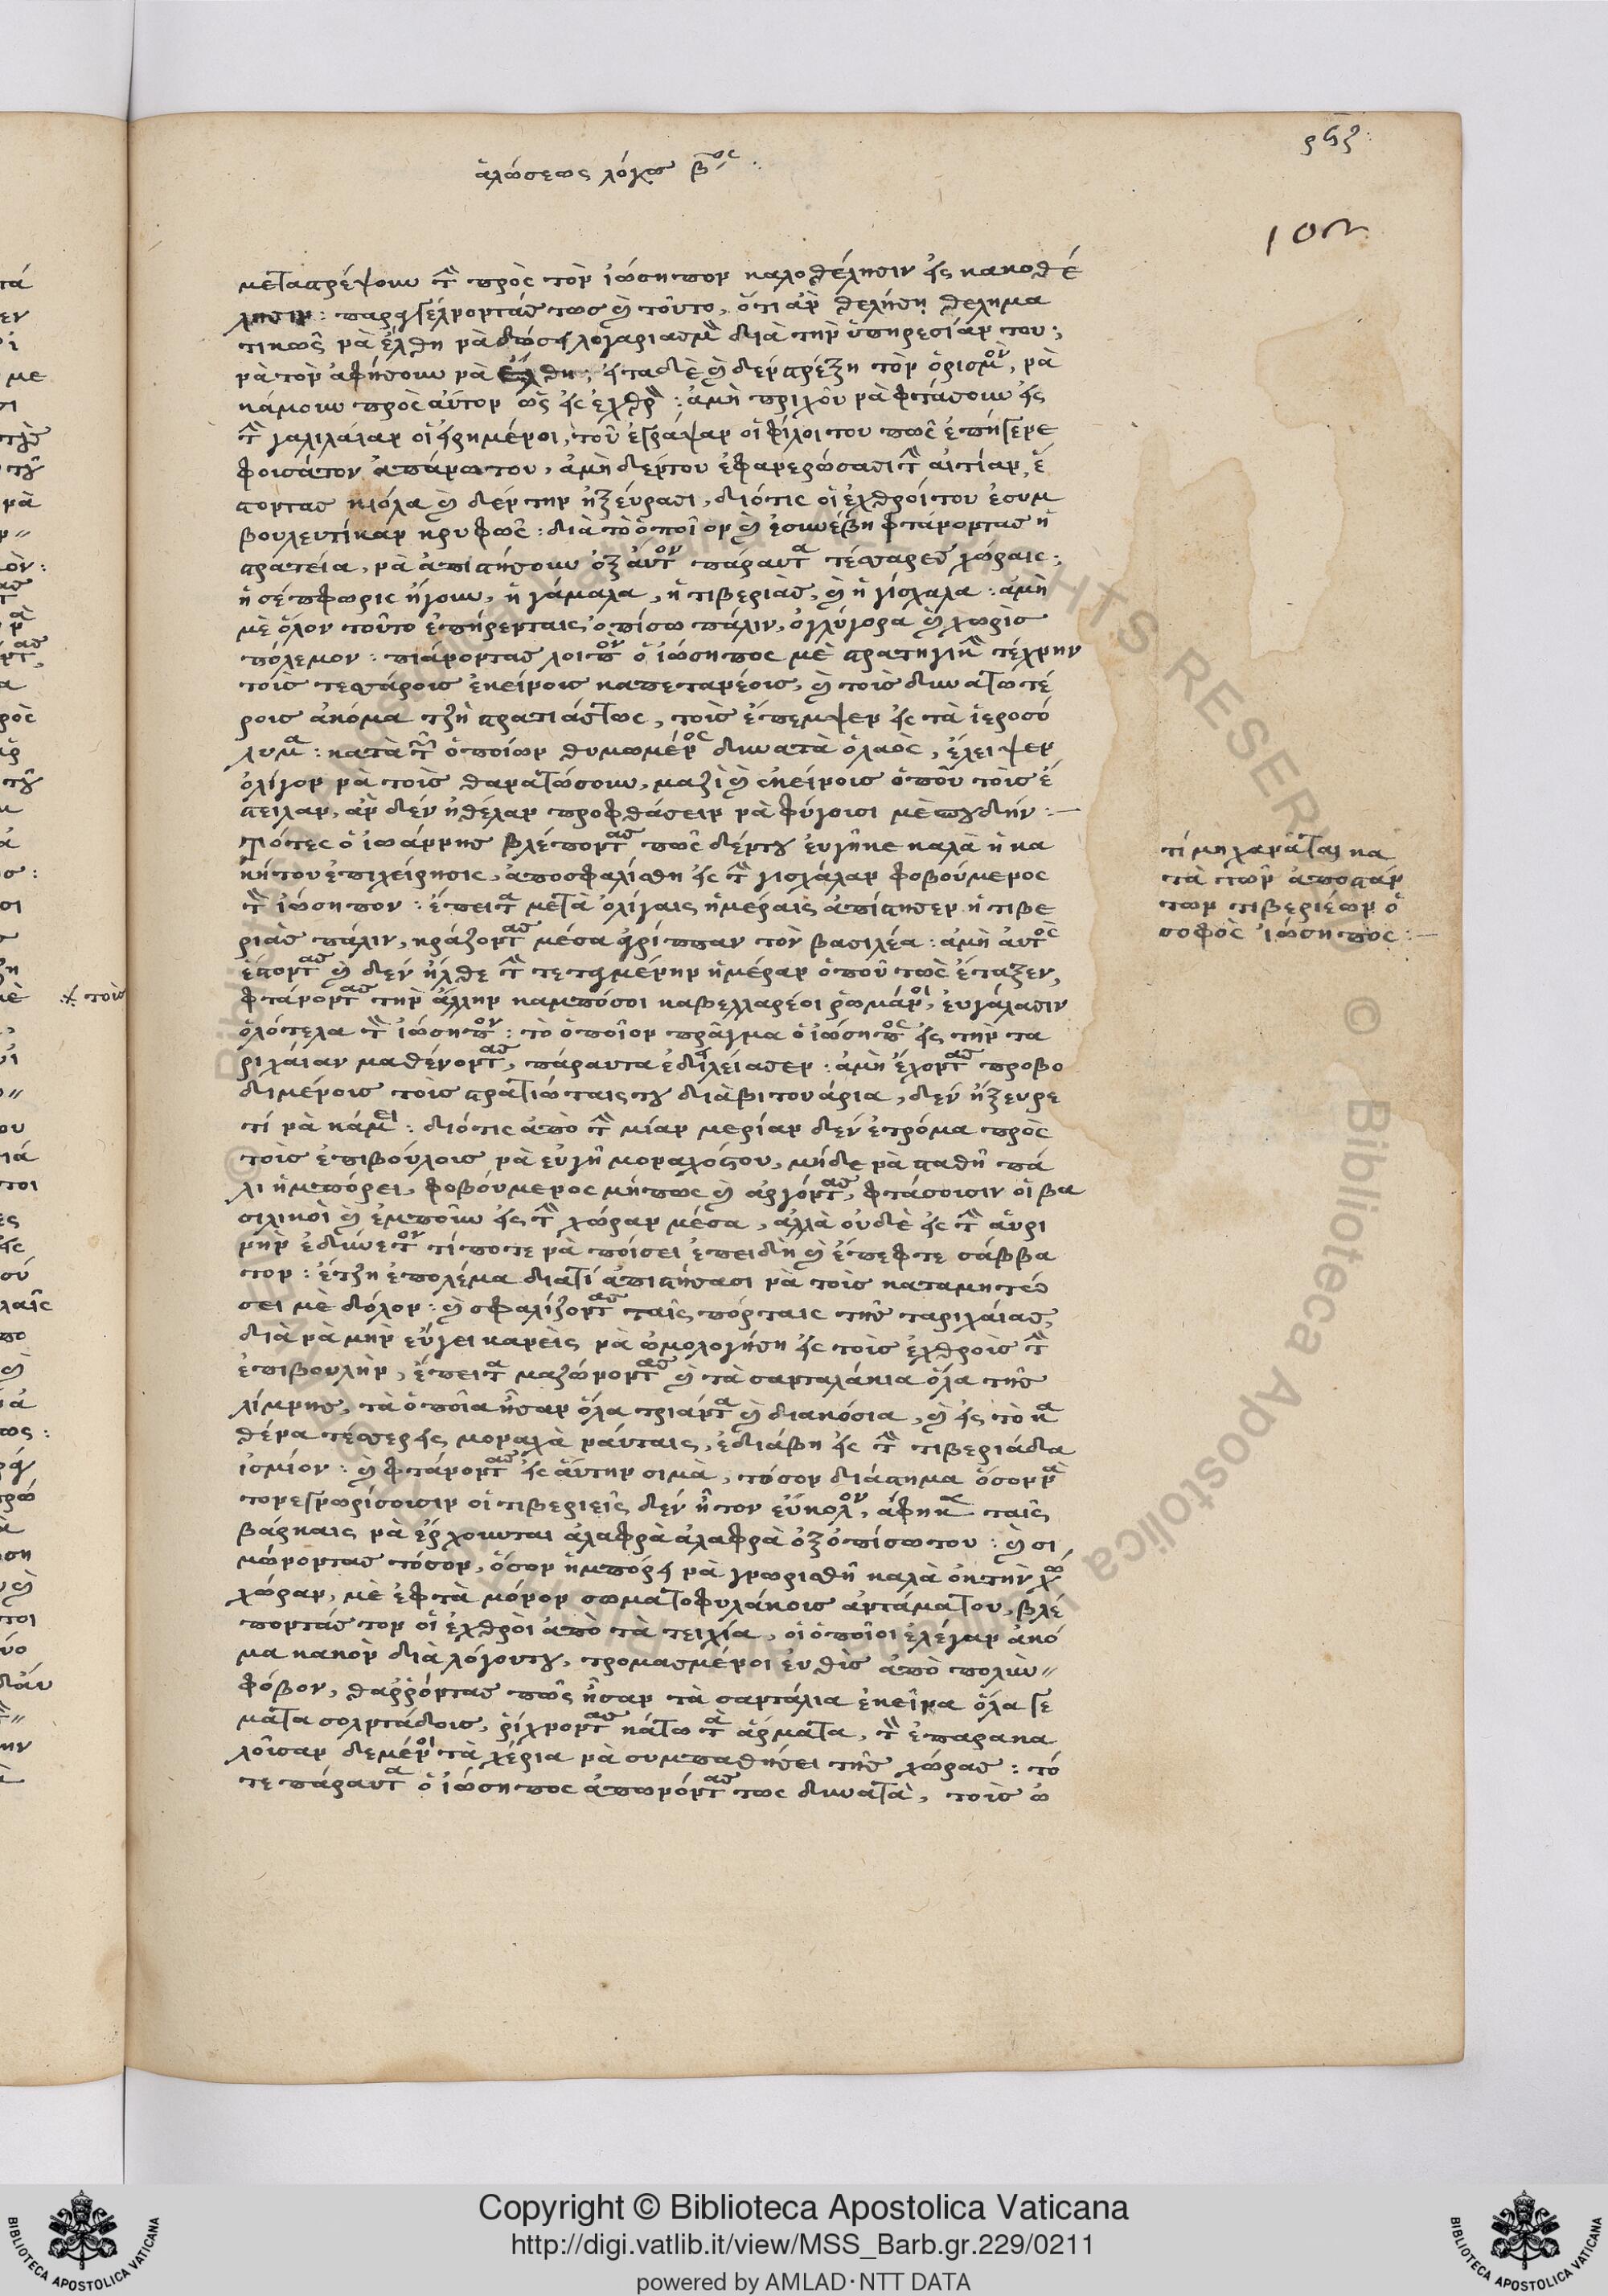 ἁλώσεως λόγω βος
107
μεταστρέψουν τὴν πρὸς τὸν ἰώσηπον καλοθέλησιν εἰς κακοθέ
λησιν: παραγγέλνοντάς τως καὶ τοῦτο, ὅτι ἂν θελήση θελημα
τικῶς νὰ ἔλθη νὰ δώσει λογαριασμὸν διὰ τὴν ὑπηρεσίαν του;
νὰ τὸν ἀφήσουν νὰ ἔλθη; εἰταδὲ καὶ δὲν στρέξη τὸν ὁρισμὸν, νὰ
κάμουν πρὸς αὐτὸν ὡς εἰς ἐχθρὸν: ἀμὴ πριχοῦ νὰ φτάσουν εἰς
τὴν γαλιλαίαν οἱ εἰρημένοι, τοῦ ἐγράψαν οἱ φίλοι του πῶς ἐπήγενε
φουσάτον ἀπάνω του, ἀμὴ δέντου ἐφανερώσασι τὴν αἰτίαν, ἔ
στοντας κιόλα καὶ δὲν τὴν ἠξεύρασι, διότις οἱ ἐχθροί του ἐσυμ
βουλευτήκαν κρυφῶς: διὰ τὸ ὁποῖον καὶ ἐσυνέβη φτάνοντας ἡ
στρατεία, νὰ ἀπιστήσουν ὀξ αὐτὸν πάραυτα τέσσαρες χώραις;
ἡ σέπφωρις ἤγουν, ἡ γάμαλα, ἡ τιβεριὰς, καὶ ἡ γίσχαλα: ἀμὴ
μὲ ὅλον τοῦτο ἐπήρενταις ὀπίσω πάλιν, ὀγλύγορα καὶ χωρὶς
πόλεμον: πιάνοντας λοιπὸν ὁ ἰώσηπος μὲ στρατηγικὴν τέχνην
τοὺς τεσσάροις ἐκείνοις καπετανέοις, καὶ τοὶς δυνατωτέ
ροις ἀκόμα τζὴ στρατιάστως, τοὶς ἔπεμψεν εἰς τὰ ἱεροσό
λυμα: κατὰ τῶν ὁποίων θυμωμένος δυνατὰ ὁ λαὸς, ἔλειψεν
ὀλίγον νὰ τοὶς θανατώσουν, μαζὶ καὶ ἐκείνοις ὁποῦ τοὶς ἐ
στείλαν, ἂν δὲν ἠθέλαν προφθάσειν νὰ φύγουσι μὲ σπουδήν:—
Τότες ὁ ἰωάννης βλέποντας πῶς δέντου ἐυγῆκε καλὰ ἡ κα
κή του ἐπιχείρησις, ἀποσφαλίσθη εἰς τὴν γισχάλαν φοβούμενος
τὸν ἰώσηπον: ἔπειτα μετὰ ὀλίγαις ἡμέραις ἀπίστησεν ἡ τιβε
ριὰς πάλιν, κράζοντας μέσα ἀγρίππαν τὸν βασιλέα: ἀμὴ αὐτὸς
ἔστοντας καὶ δὲν ἦλθε τὴν τεταμένην ἡμέραν ὁποῦ τὼς ἔταξεν,
φτάνοντας τὴν ἄλλην καμπόσοι καβελλαρέοι ῥωμάνοι, ἐυγάλασιν
ὁλότελα τὸν ἰώσηπον: τὸ ὁποῖον πρᾶγμα ὁ ἰώσηπος εἰς τὴν τα
ριχαίαν μαθένοντας, πάραυτα ἐδιλείασεν: ἀμὴ ἔχοντας προβο
διμένοις τοὶς στρατιώταις του διὰ βιτουάρια, δὲν ἤξευρε
τί νὰ κάμει: διότις ἀπὸ τὴν μίαν μερίαν δὲν ἐτρόμα πρὸς
τοὶς ἐπιβούλοις νὰ εὐγῆ μοναχόστου, μήδε νὰ σταθῆ πά
λι ἡμπόρει, φοβούμενος μήπως καὶ ἀργόντας, φτάσουσιν οἱ βα
σιλικοὶ καὶ ἐμποῦν εἰς τὴν χώραν μέσα, ἀλλὰ οὐδὲ εἰς τὴν αὔρι
νὴν ἐδύνετον τίποτε νὰ ποίσει ἐπειδὴ καὶ ἔπεφτε σάββα
τον: ἔτζη ἐπολέμα διατί ἀπιστήσασι νὰ τοὶς καταμητεύ
σει μὲ δόλον: καὶ σφαλίζοντας ταῖς πόρταις τῆς ταριχαίας,
διὰ νὰ μὴν εὔγει κανεὶς νὰ ὡμολογήση εἰς τοὶς ἐχθροὶς τὴν
ἐπιβουλὴν, ἔπειτα μαζώνοντας καὶ τὰ σανταλάκια ὅλα τῆς
λίμνης, τὰ ὁποῖα ἦσαν ὅλα τριάντα καὶ διακόσια, καὶ εἰς τὸ κα
θένα τέσσερεις μοναχὰ ναύταις, ἐδιάβη εἰς τὴν τιβεριάδα
ἰσμίον: καὶ φτάνοντας εἰς αὔτην σιμὰ, τόσον διάστημα ὅσον νὰ
τονεγνωρίσουσιν οἱ τιβεριεῖς δὲν ἦτον εὔκολον, ἀφῆκε ταῖς
βάρκαις νὰ ἔρχουνται ἀλαφρὰ ἀλαφρὰ ὀξοπίσωτου: καὶ σι
μώνοντας τόσον, ὅσον ἡμπόρει νὰ γνωρισθῆ καλὰ ὀκτὴν χω
χώραν, μὲ ἐφτὰ μόνον σωματοφυλάκοις ἀντάματου, βλέ
ποντάς τον οἱ ἐχθροὶ ἀπὸ τὰ τειχία, οἱ ὁποῖοι ἐλέγαν ἀκό
μα κακὸν διὰ λόγουτου, τρομασμένοι ἐυθὶς ἀπὸ πολὺν
φόβον, θαῤῥόντας πῶς ἦσαν τὰ σαντάλια ἐκεῖνα ὅλα γε
μάτα σολντάδοις, ῥίχνοντας κάτω τὰ ἄρματα, τὸν ἐπαρακα
λοῦσαν δεμένοι τὰ χέρια νὰ συμπαθήσει τῆς χώρας: τό
τε πάραυτα ὁ ἰώσηπος ἀπωνόντας τως δυνατὰ, τοὶς ὠ
τί μηχανᾶται κα
τὰ τῶν ἀποσταν
των τιβεριέων ὁ
σοφὸς ἰώσηπος:—
Copyright © Biblioteca Apostolica Vaticana
http://digi.vatlib.it/view/MSS_Barb.gr.229/0211
powered by AMLAD·NTT DATA